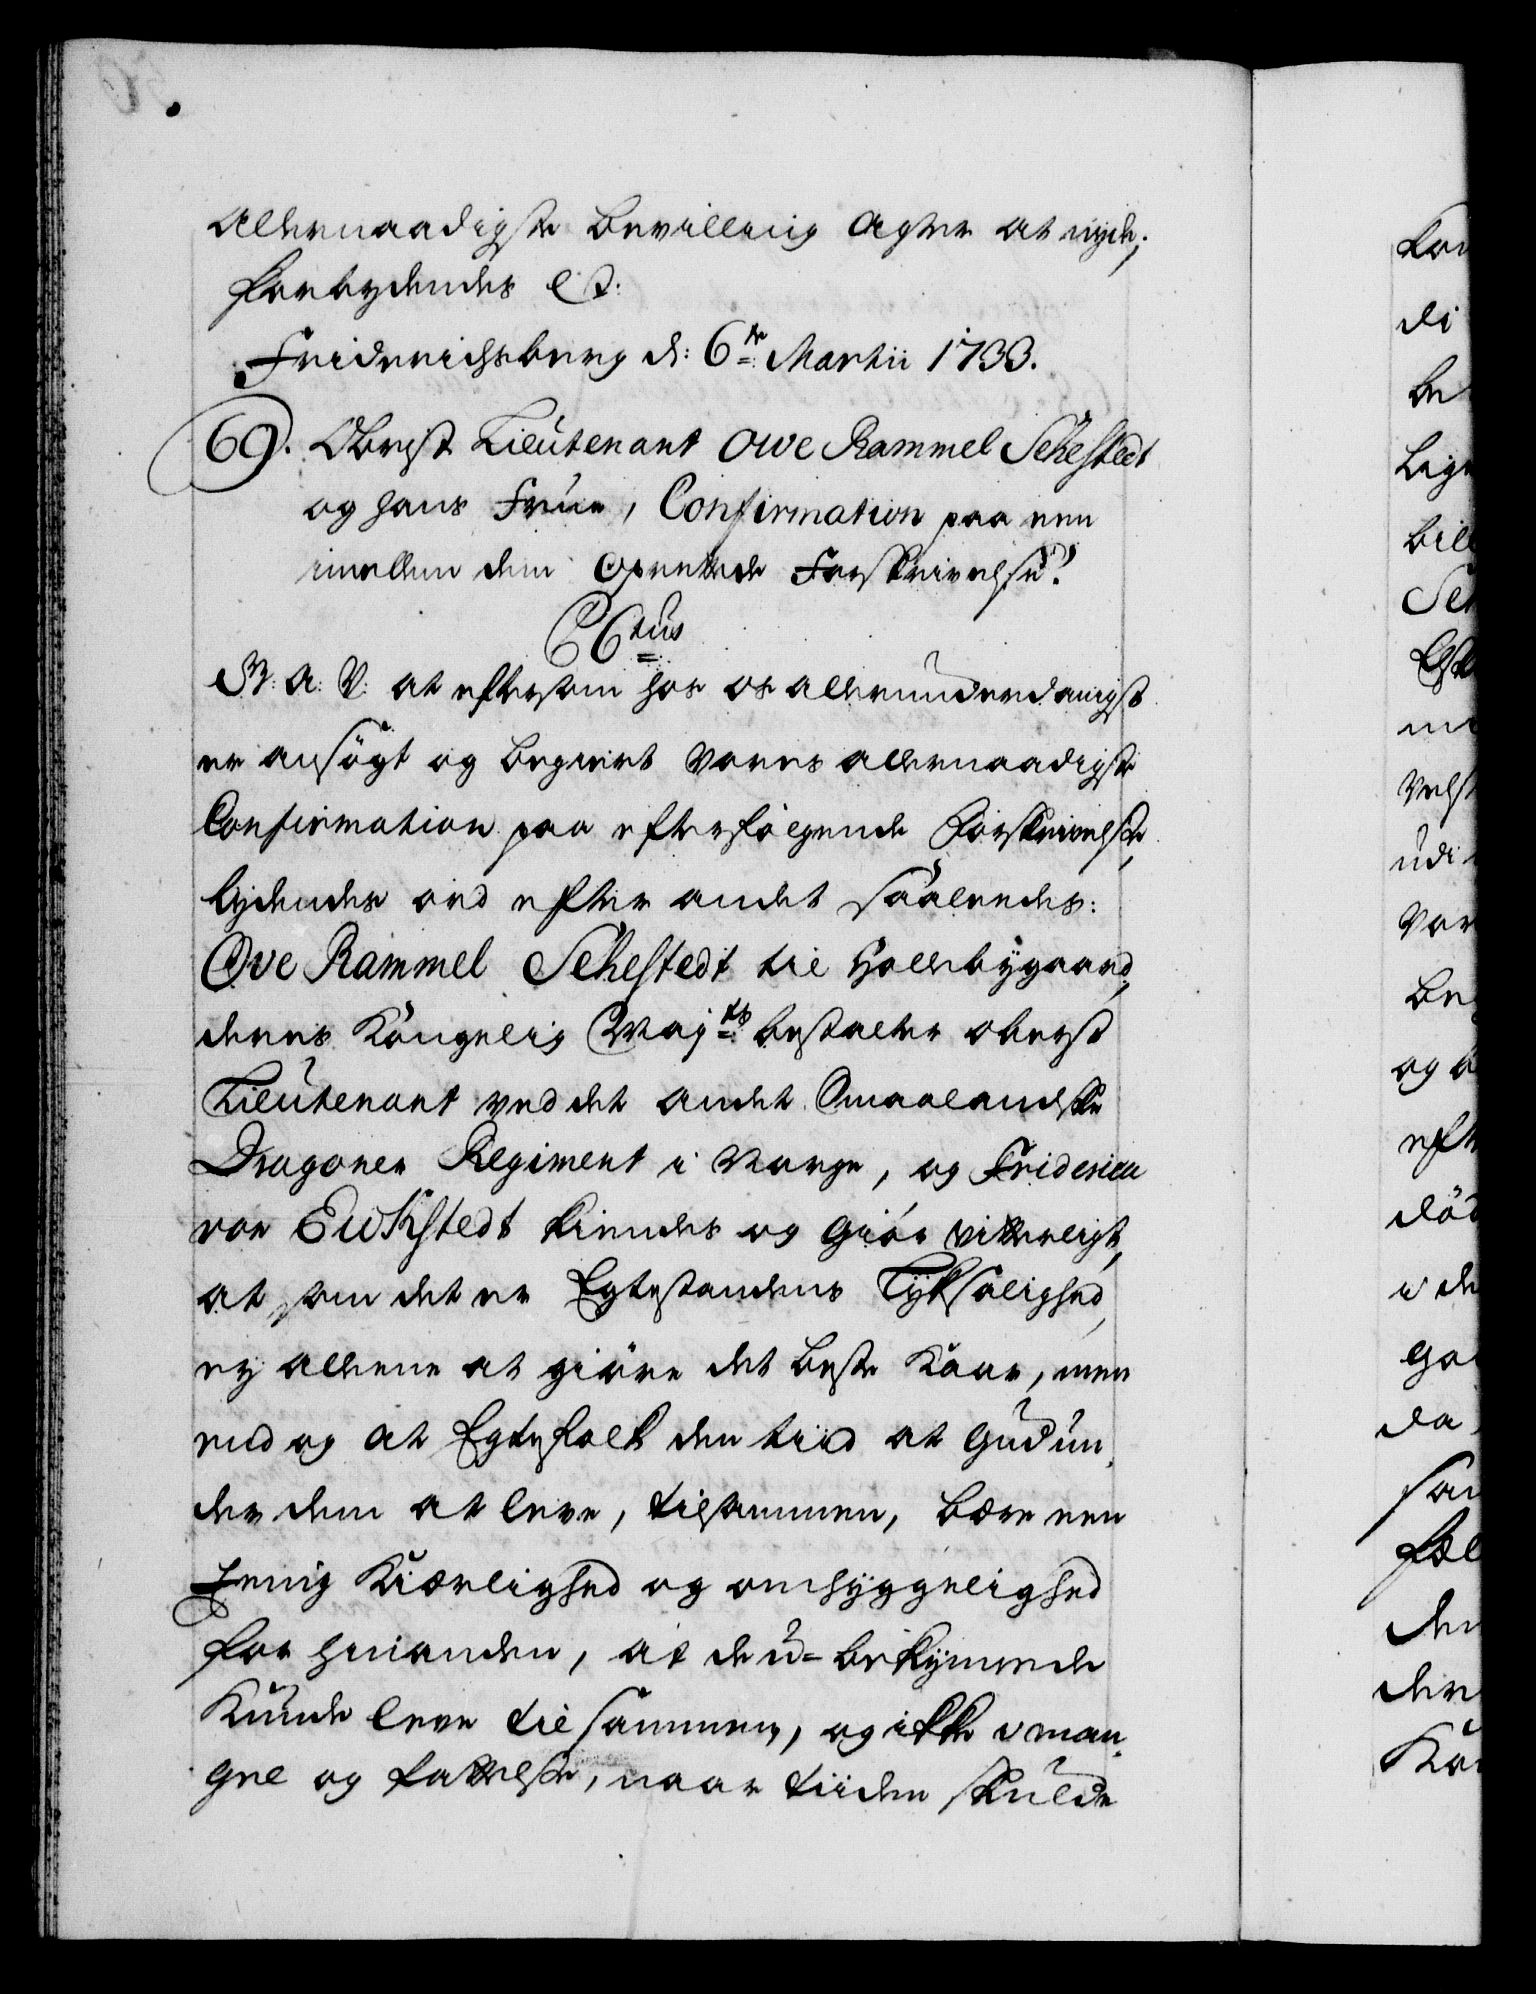 allernaadigste bevilling agter at nyde;
forbydendes etc:
Friderichsberg d: 6te Martii 1733.
69. Obrist Lieutenant Owe Rammel Sehestedt
og hans Frue, Confirmation paa een
imellem dem oprettede Forskrivelse.
C6tus
G: A: V: at eftersom hos os allerunderdanigst
er ansögt og begiert vores allernaadigste
Confirmation paa efterfölgende Forskrivelse,
lydendes ord efter andet saaledes:
Ove Rammel Sehestedt til Hollebygaard,
deres Kongelig Mayts bestalter oberst
Lieutenant ved det andet Smaalandske
Dragoner Regiment i Norge, og Friderica
von Eickstedt kiendes og giör vitterligt,
at som det er Egtestandens Lyksalighed,
ey alleene at giöre det beste Kaar, men
end og at Egtefolk den tiid at Gud un-
der dem at leve, tilsammen, bære een
Jevnig Kiærlighed og omhyggelighed
for hinanden, at de u-bekymrede
Kunde leve tilsammen, og ikke i man-
gel og fattelse, naar tiiden skulde
50
di
be
Lige
bill
udi
Vor
be
og b
efte
död
i de
da